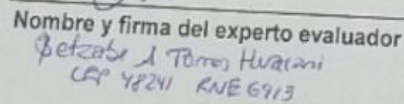 Nombre y firma del experto evaluador
Betzabe A Torres Huacani
CEP 48241 RNE 6913